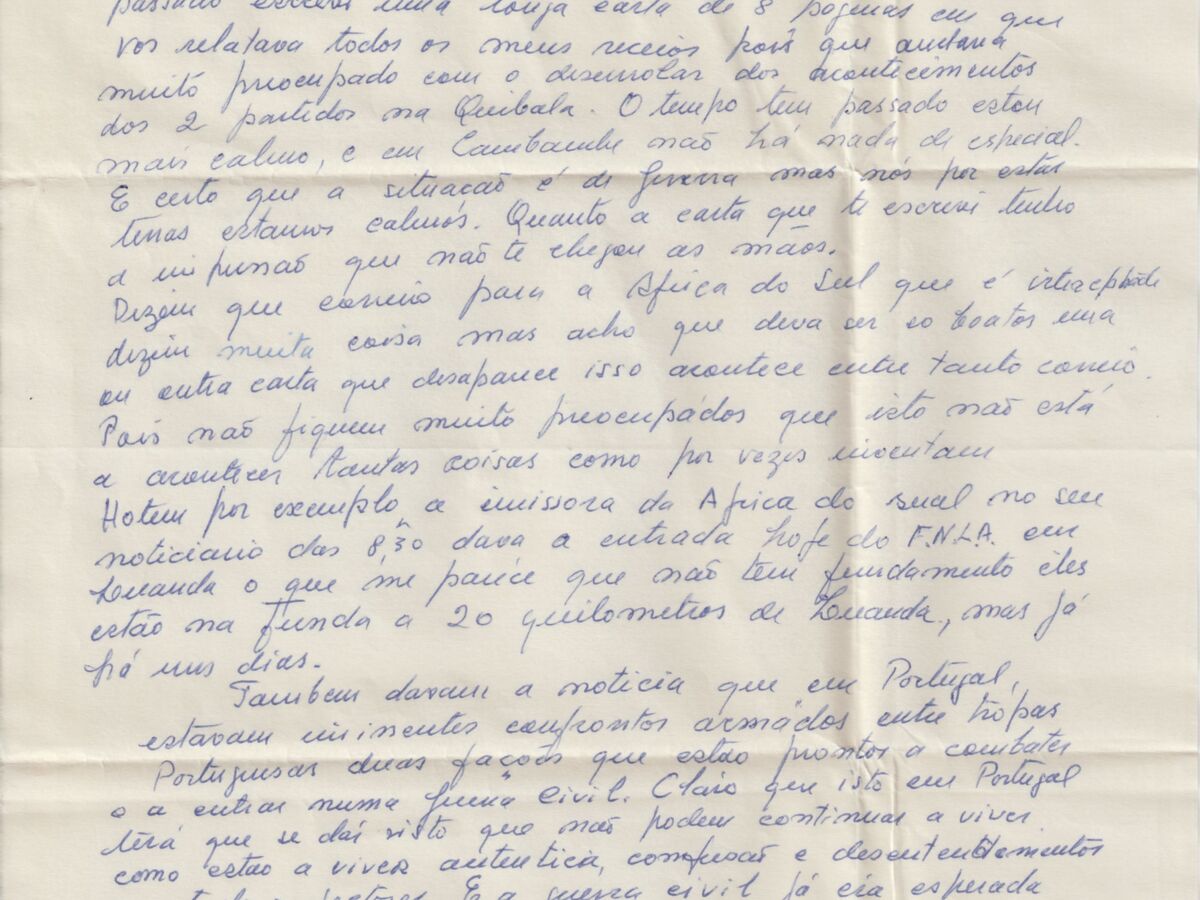 passado escrevi uma longa carta de 8 páginas em que
vos relatava todos os meus receios pois que andava
muito preocupado com o desenrolar dos acontecimentos
dos 2 partidos na Quibala. O tempo tem passado estou
mais calmo, e em Cambambe não há nada de especial.
E certo que a situação é de Guerra mas nós por estas
terras estamos calmos. Quanto a carta que te escrevi tenho
a impressão que não te chegou as mãos.
Dizem que correio para a Africa do Sul que é
dizem muita coisa mas acho que deva ser so boatos uma
ou outra carta que desaparece isso acontece entre tanto correio.
Pois não fiquem muito preocupados que isto não está
a acontecer tantas coisas como por vezes inventam
Hotem por exemplo a emissora da Africa do sual no seu
noticiario das 8,30 dava a entrada hoje do F.N.L.A. em
Luanda o que me parece que não tem fundamento eles
estão na Funda a 20 quilometros de Luanda, mas já
há uns dias.
Tambem davam a noticia que em Portugal,
estavam iminentes confrontos armados entre tropas
Portuguesas duas fações que estão prontos a combater
e a entrar numa Guerra Civil. Claro que isto em Portugal
terá que se dar visto que não podem continuar a viver
como estão a viver autentica, confusão e
E a guerra civil já era esperada